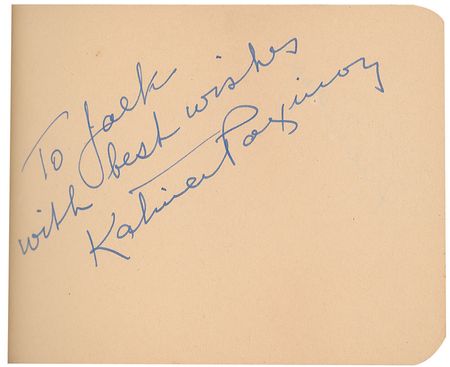 To Jack
with best wishes
Katina Paxinou